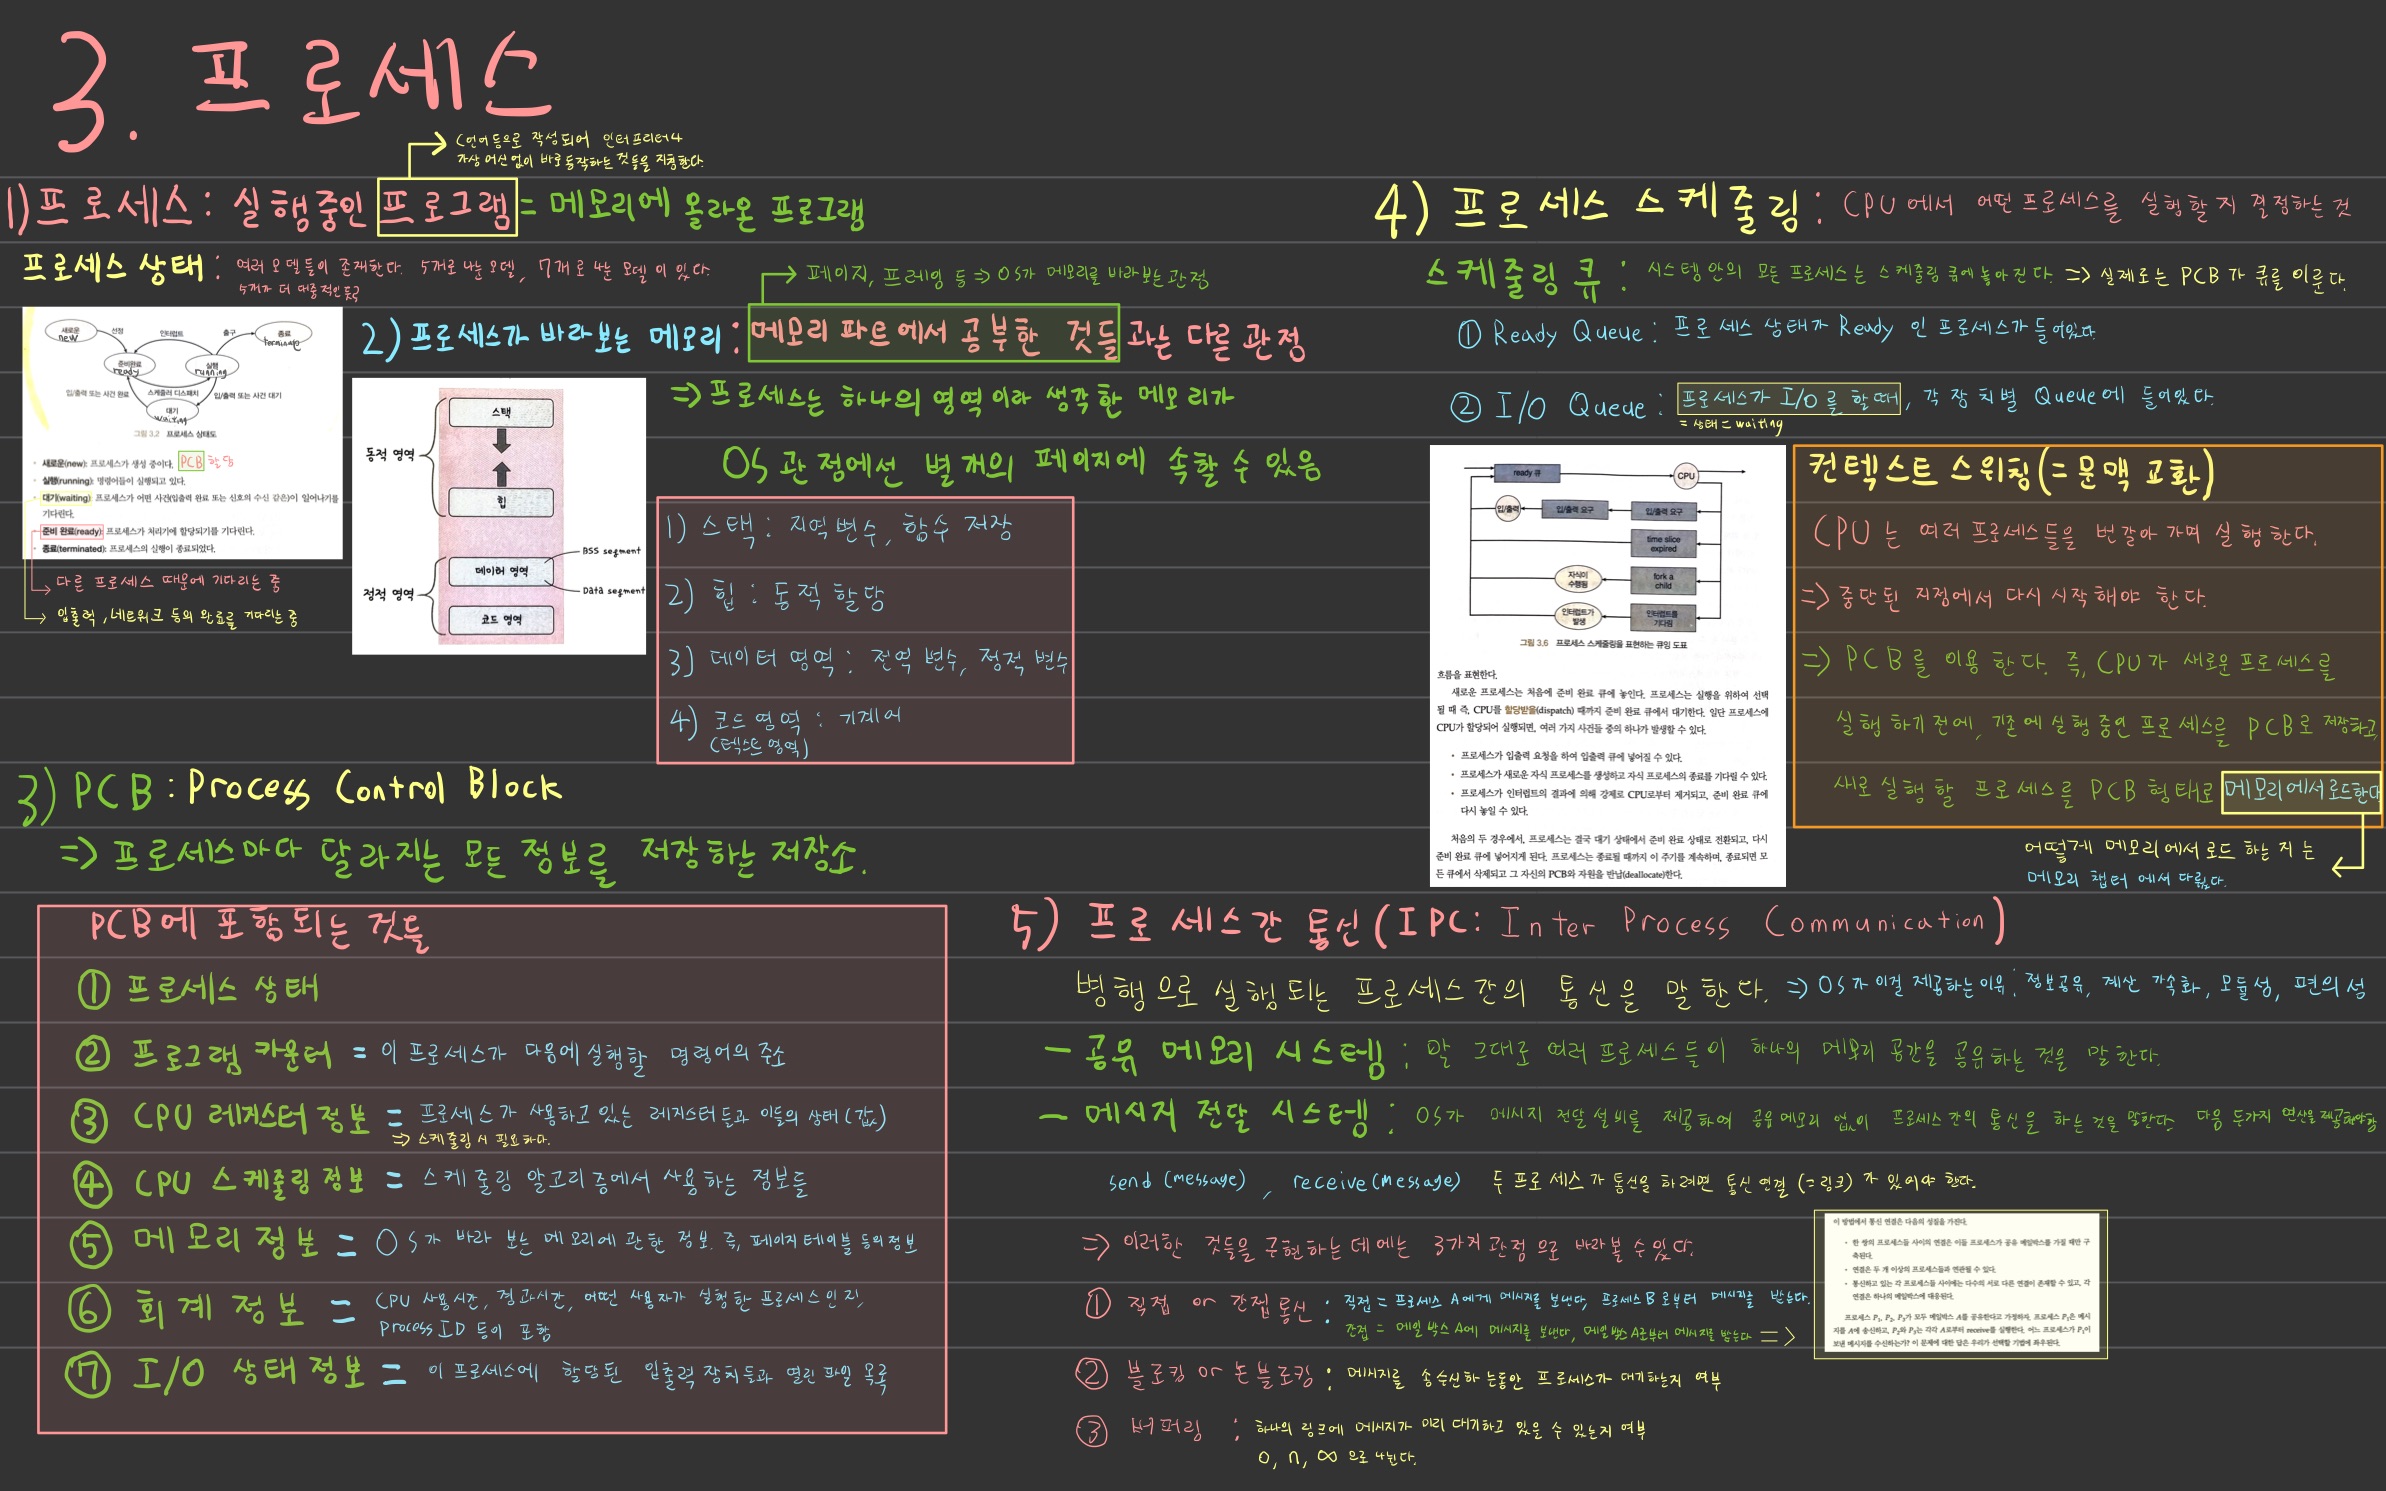 3. 프로세스
C언어등으로 작성되어 인터프리터나
가상머신없이 바로 동작하는 것들을 지칭한다.
1) 프로세스 : 실행중인 프로그램 = 메모리에 올라온 프로그램
프로세스 상태 : 여러 모델들이 존재한다. 5개로 나눈 모델, 7개로 나눈 모델이 있다.
5개가 더 대중적인듯?
새로운
new
선정
인터럽트
출구
종료
terminate
준비완료
ready
실행
running
입/출력 또는 사건 완료
스케줄러 디스패치
입/출력 또는 사건 대기
대기
waiting
그림 3.2 프로세스 상태도
• 새로운(new): 프로세스가 생성 중이다. PCB 할당
• 실행(running): 명령어들이 실행되고 있다.
• 대기(waiting): 프로세스가 어떤 사건(입출력 완료 또는 신호의 수신 같은)이 일어나기를
기다린다.
• 준비 완료(ready): 프로세스가 처리기에 할당되기를 기다린다.
• 종료(terminated): 프로세스의 실행이 종료되었다.
다른 프로세스 때문에 기다리는 중
입출력, 네트워크 등의 완료를 기다리는 중
페이지, 프레임 등 ⇒ OS가 메모리를 바라보는 관점
2) 프로세스가 바라보는 메모리 : 메모리 파트에서 공부한 것들과는 다른 관점
⇒ 프로세스는 하나의 영역이라 생각한 메모리가
OS 관점에선 별개의 페이지에 속할 수 있음
동적 영역
스택
힙
정적 영역
데이터 영역
BSS segment
Data segment
코드 영역
1) 스택 : 지역변수, 함수 저장
2) 힙 : 동적 할당
3) 데이터 영역 : 전역 변수, 정적 변수
4) 코드영역 : 기계어
(텍스트 영역)
3) PCB : Process Control Block
⇒ 프로세스마다 달라지는 모든 정보를 저장하는 저장소.
PCB에 포함되는 것들
① 프로세스 상태
② 프로그램 카운터 = 이 프로세스가 다음에 실행할 명령어의 주소
③ CPU 레지스터 정보 = 프로세스가 사용하고 있는 레지스터들과 이들의 상태(값)
⇒ 스케줄링 시 필요하다.
④ CPU 스케줄링 정보 = 스케줄링 알고리즘에서 사용하는 정보들
⑤ 메모리 정보 = OS가 바라 보는 메모리에 관한 정보. 즉, 페이지 테이블 등의 정보
⑥ 회계 정보 = CPU 사용시간, 경과시간, 어떤 사용자가 실행한 프로세스인지,
Process ID 등이 포함
⑦ I/O 상태 정보 = 이 프로세스에 할당된 입출력 장치들과 열린 파일 목록
4) 프로세스 스케줄링 : CPU에서 어떤 프로세스를 실행할지 결정하는 것
스케줄링 큐 : 시스템 안의 모든 프로세스는 스케줄링 큐에 놓아진다. ⇒ 실제로는 PCB가 큐를 이룬다.
① Ready Queue : 프로세스 상태가 Ready 인 프로세스가 들어있다.
② I/O Queue : 프로세스가 I/O를 할때, 각 장치별 Queue에 들어있다.
= 상태 = waiting
ready 큐
CPU
입/출력
입/출력 요구
입/출력 요구
time slice
expired
자식이
수행됨
fork a
child
인터럽트가
발생
인터럽트를
기다림
그림 3.6 프로세스 스케줄링을 표현하는 큐잉 도표
흐름을 표현한다.
새로운 프로세스는 처음에 준비 완료 큐에 놓인다. 프로세스는 실행을 위하여 선택
될 때 즉, CPU를 할당받을(dispatch) 때까지 준비 완료 큐에서 대기한다. 일단 프로세스에
CPU가 할당되어 실행되면, 여러 가지 사건들 중의 하나가 발생할 수 있다.
• 프로세스가 입출력 요청을 하여 입출력 큐에 넣어질 수 있다.
• 프로세스가 새로운 자식 프로세스를 생성하고 자식 프로세스의 종료를 기다릴 수 있다.
• 프로세스가 인터럽트의 결과에 의해 강제로 CPU로부터 제거되고, 준비 완료 큐에
다시 놓일 수 있다.
처음의 두 경우에서, 프로세스는 결국 대기 상태에서 준비 완료 상태로 전환되고, 다시
준비 완료 큐에 넣어지게 된다. 프로세스는 종료될 때까지 이 주기를 계속하며, 종료되면 모
든 큐에서 삭제되고 그 자신의 PCB와 자원을 반납(deallocate)한다.
컨텍스트 스위칭(= 문맥 교환)
CPU는 여러 프로세스들을 번갈아 가며 실행한다.
⇒ 중단된 지점에서 다시 시작해야 한다.
⇒ PCB를 이용한다. 즉, CPU가 새로운 프로세스를
실행하기 전에, 기존에 실행 중인 프로세스를 PCB로 저장하고,
새로 실행할 프로세스를 PCB 형태로 메모리에서 로드한다
어떻게 메모리에서 로드 하는 지는
메모리 챕터 에서 다룬다.
5) 프로세스간 통신 (IPC: Inter Process Communication)
병행으로 실행되는 프로세스간의 통신을 말한다. ⇒ OS가 이걸 제공하는 이유 : 정보공유, 계산 가속화, 모듈성, 편의성
- 공유 메모리 시스템 : 말 그대로 여러 프로세스들이 하나의 메모리 공간을 공유하는 것을 말한다.
- 메시지 전달 시스템 : OS가 메시지 전달 설비를 제공하여 공유 메모리 없이 프로세스 간의 통신을 하는 것을 말한다. 다음 두가지 연산을 제공해야함
send (message) , receive(message) 두 프로세스가 통신을 하려면 통신 연결 (= 링크) 가 있어야 한다.
⇒ 이러한 것들을 구현하는 데에는 3가지 관점으로 바라볼 수 있다.
① 직접 or 간접통신 : 직접 = 프로세스 A에게 메시지를 보낸다, 프로세스 B로부터 메시지를 받는다.
간접 = 메일 박스 A에 메시지를 보낸다, 메일 박스 A로부터 메시지를 받는다 ⇒
이 방법에서 통신 연결은 다음의 성질을 가진다.
• 한 쌍의 프로세스들 사이의 연결은 이들 프로세스가 공유 메일박스를 가질 때만 구
축된다.
• 연결은 두 개 이상의 프로세스들과 연관될 수 있다.
• 통신하고 있는 각 프로세스들 사이에는 다수의 서로 다른 연결이 존재할 수 있고, 각
연결은 하나의 메일박스에 대응된다.
프로세스 P₁, P₂, P₃가 모두 메일박스 A를 공유한다고 가정하자. 프로세스 P₁은 메시
지를 A에 송신하고, P₂와 P₃는 각각 A로부터 receive를 실행한다. 어느 프로세스가 P₁이
보낸 메시지를 수신하는가? 이 문제에 대한 답은 우리가 선택할 기법에 좌우된다.
② 블로킹 or 논블로킹 : 메시지를 송수신하는동안 프로세스가 대기하는지 여부
③ 버퍼링 : 하나의 링크에 메시지가 미리 대기하고 있을 수 있는지 여부
0, n, ∞ 으로 나뉜다.